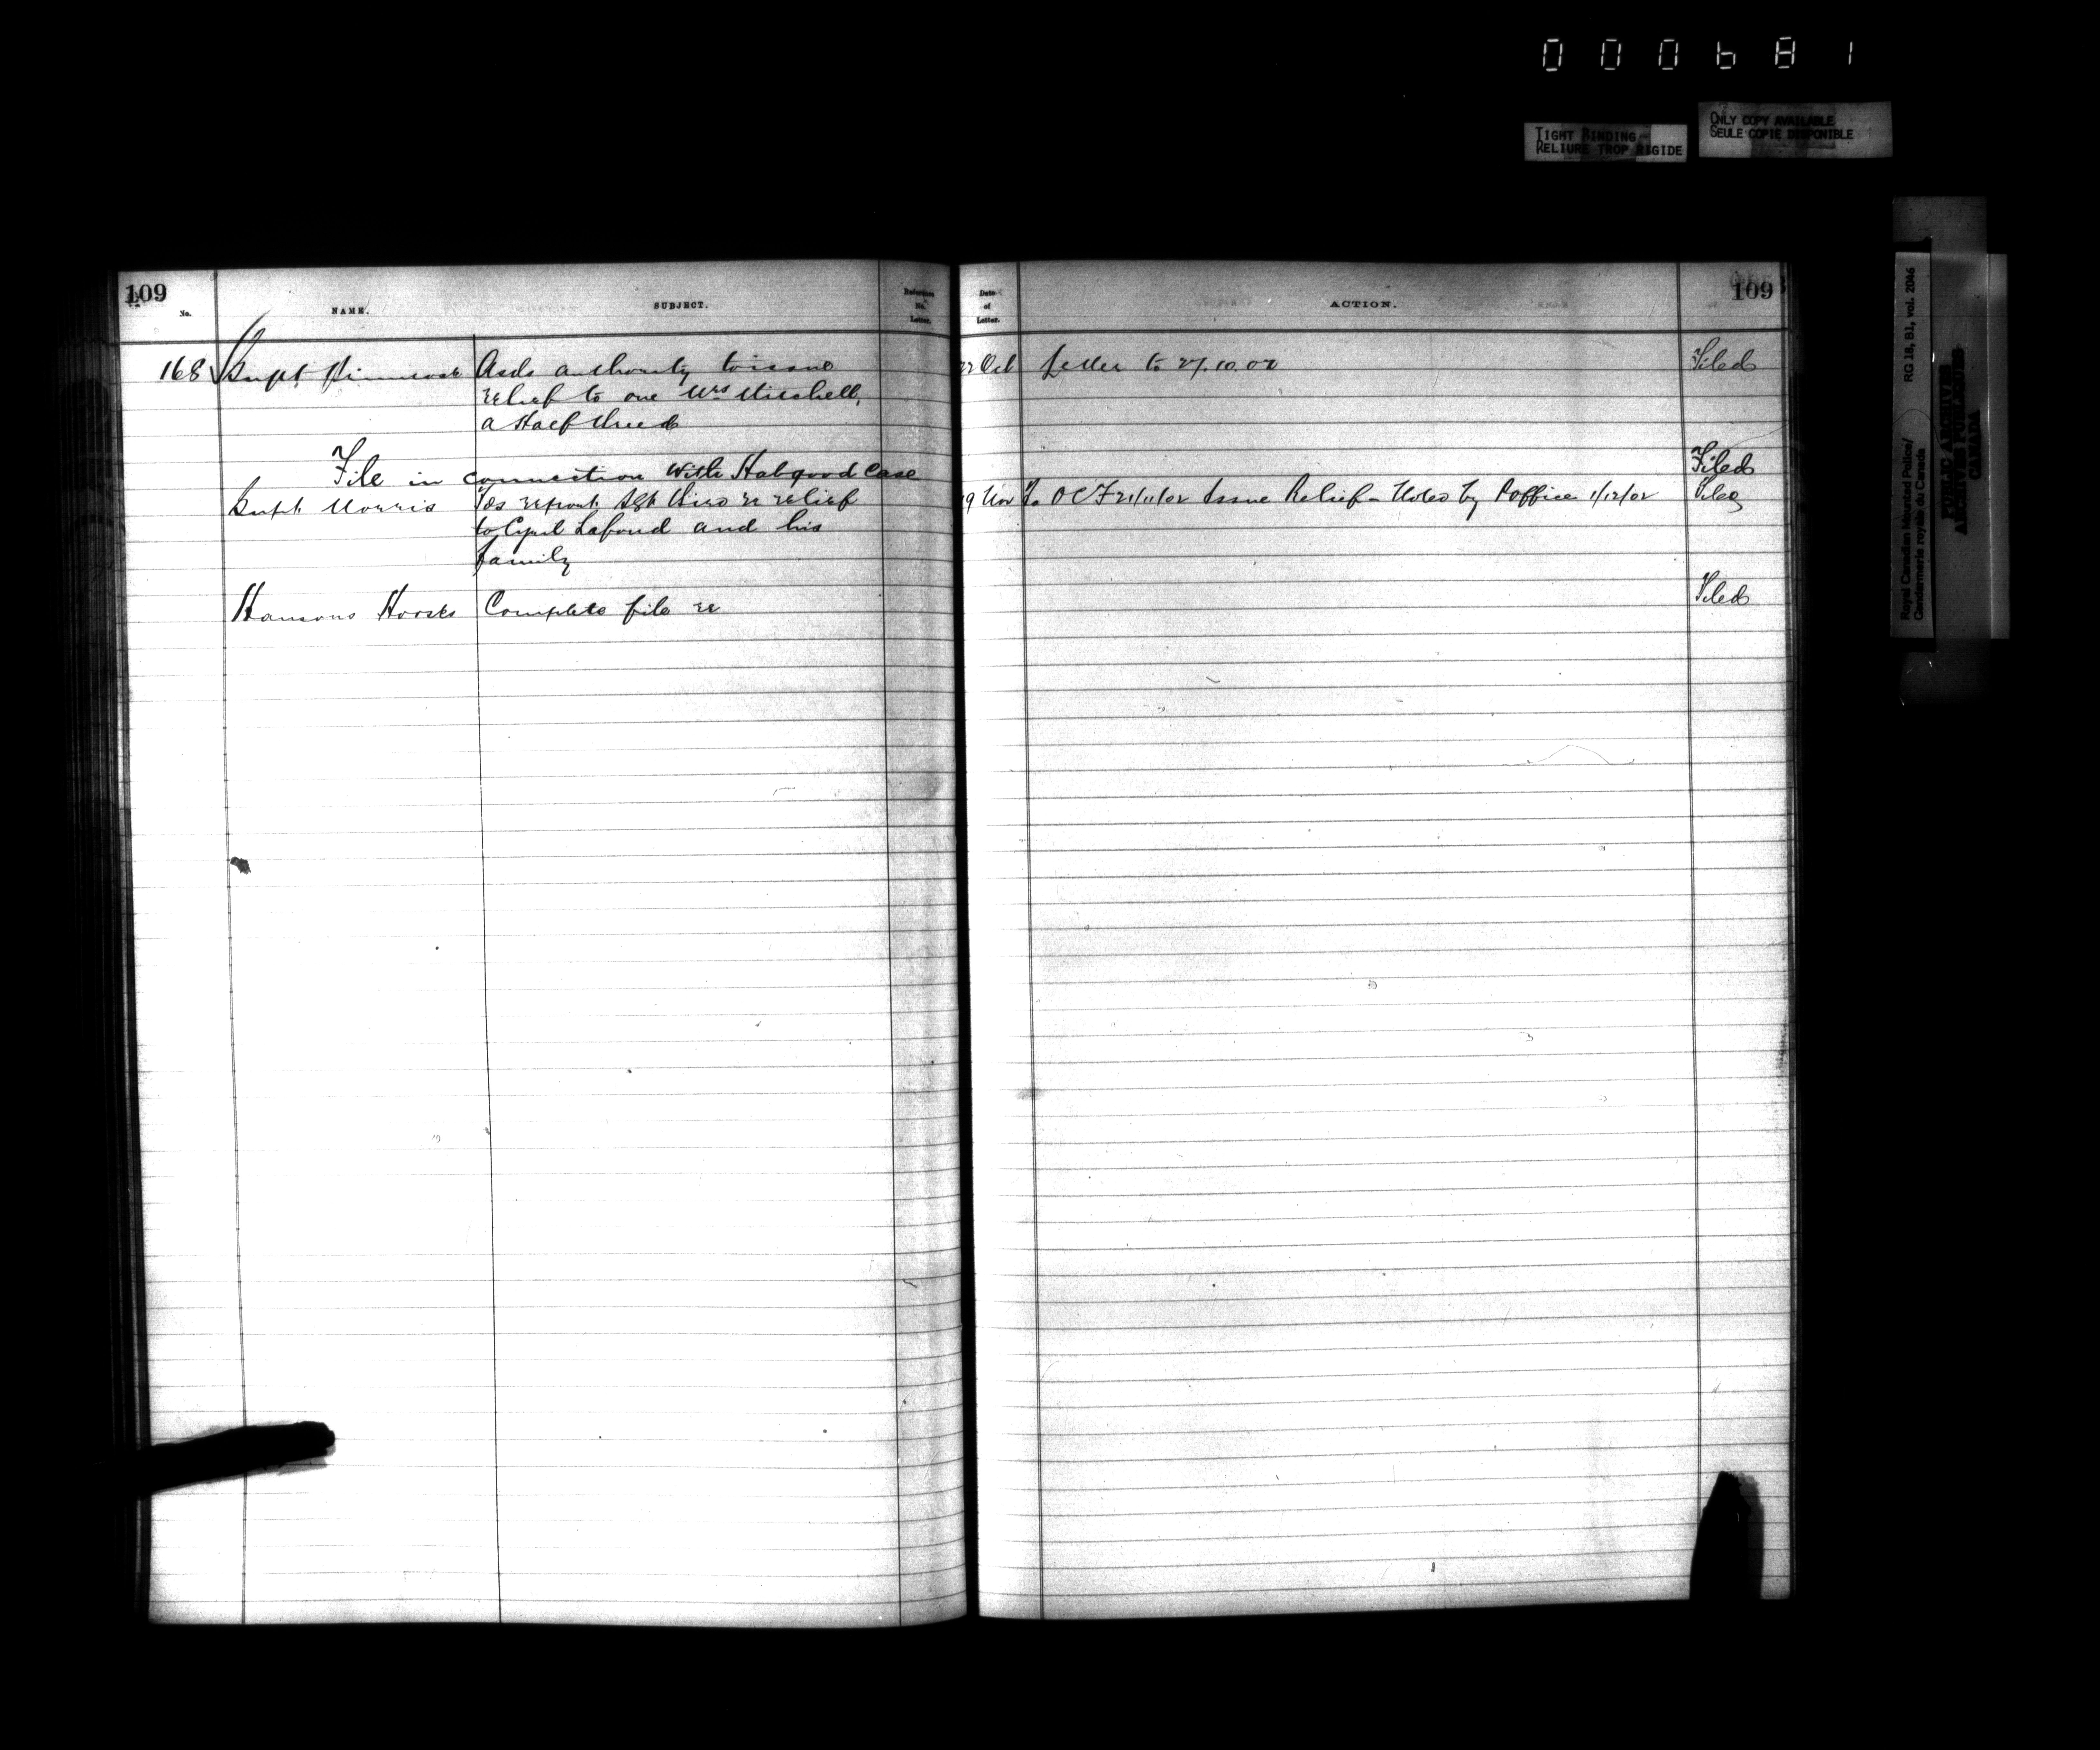 000681
TIGHT BINDING
RELIURE TROP RIGIDE
ONLY COPY AVAILABLE
SEULE COPIE DISPONIBLE
RG 18, B1, vol. 2046
Royal Canadian Mounted Police/
Gendarmerie royale du Canada
PUBLIC ARCHIVES
ARCHIVES PUBLIQUES
CANADA
109
No. NAME. SUBJECT. Reference No. Letter. Date of Letter. ACTION.
109
168 Supt Primrose Asks authority to issue Oct Letter to 27.10.02 Filed
relief to one Mrs Mitchell,
a Half breed
File in connection with Habgood Case Filed
Supt Morris Fds report Sgt re relief 19 Nov To OC F 21/11/02 Issue Relief - Noted by P office 1/12/02 Filed
to Lafond and his
family
Hansons Horses Complete file re Filed